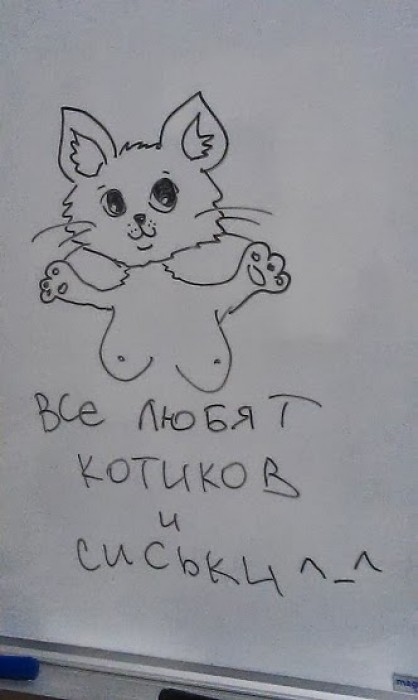 Все любят
котиков
и
сиськи ^_^